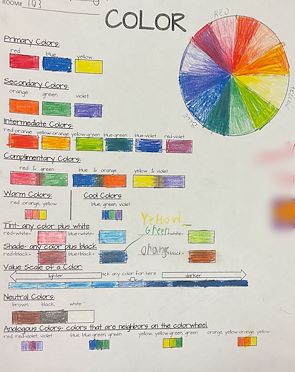 ROOM# 103
COLOR
RED
Primary Colors:
red blue yellow
Secondary Colors:
orange green violet
Intermediate Colors:
red-orange yellow-orange yellow-green blue-green blue-violet red-violet
Complimentary Colors:
red & green blue & orange yellow & violet
Warm Colors: Cool Colors:
red, orange, yellow blue, green, violet
Yellow
Tint- any color plus white
red+white= blue+white= Green
Shade- any color plus black Orange
red+black= blue+black=
Value Scale of a Color
lighter pick any color for here darker
Neutral Colors:
brown black white
Analogous Colors- colors that are neighbors on the colorwheel
red, red-violet, violet blue, blue-green, green yellow, yellow-green, green orange, yellow-orange, yellow